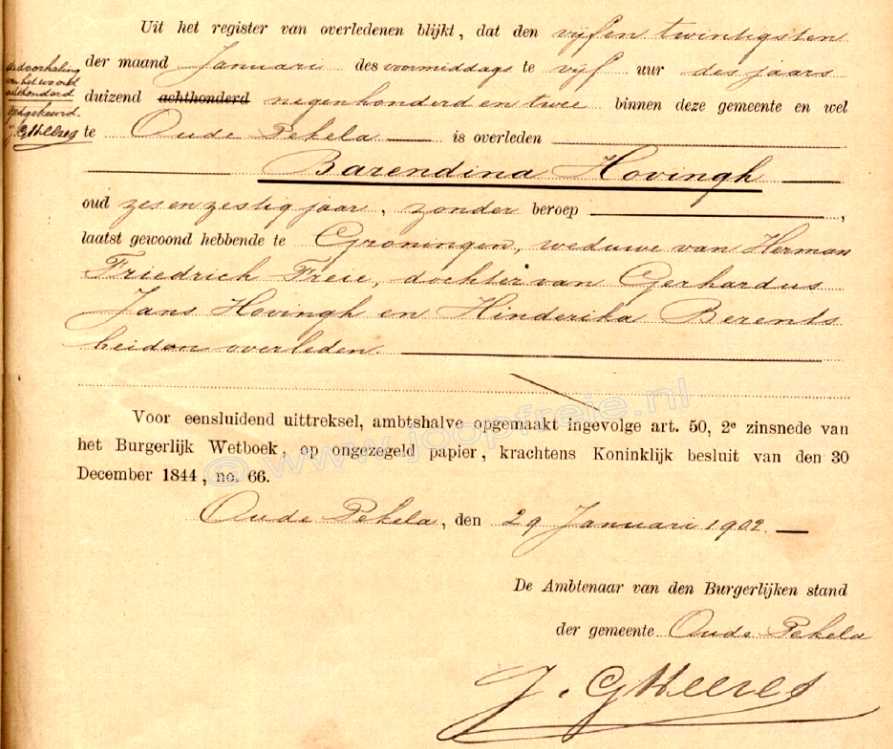 Uit het register van overledenen blijkt, dat den vijfen twintigsten
der maand Januari des voormiddags te vijf uur des jaars
duizend achthonderd negenhonderd en twee binnen deze gemeente en wel
te Oude Pekela is overleden
Barendina Hovingh
oud zes en zestig jaar, zonder beroep ,
laatst gewoond hebbende te Groningen, weduwe van Herman
Friedrich Freie, dochter van Gerhardus
Jans Hovingh en Hinderika Berends
beiden overleden.
De doorhaling
van het woord
achthonderd
goedgekeurd.
J. G Heeres
Voor eensluidend uittreksel, ambtshalve opgemaakt ingevolge art. 50, 2e zinsnede van
het Burgerlijk Wetboek, op ongezegeld papier, krachtens Koninklijk besluit van den 30
December 1844, no. 66.
Oude Pekela, den 29 Januari 1902.
De Ambtenaar van den Burgerlijken stand
der gemeente Oude Pekela
J. G Heeres
© www.joopfreie.nl